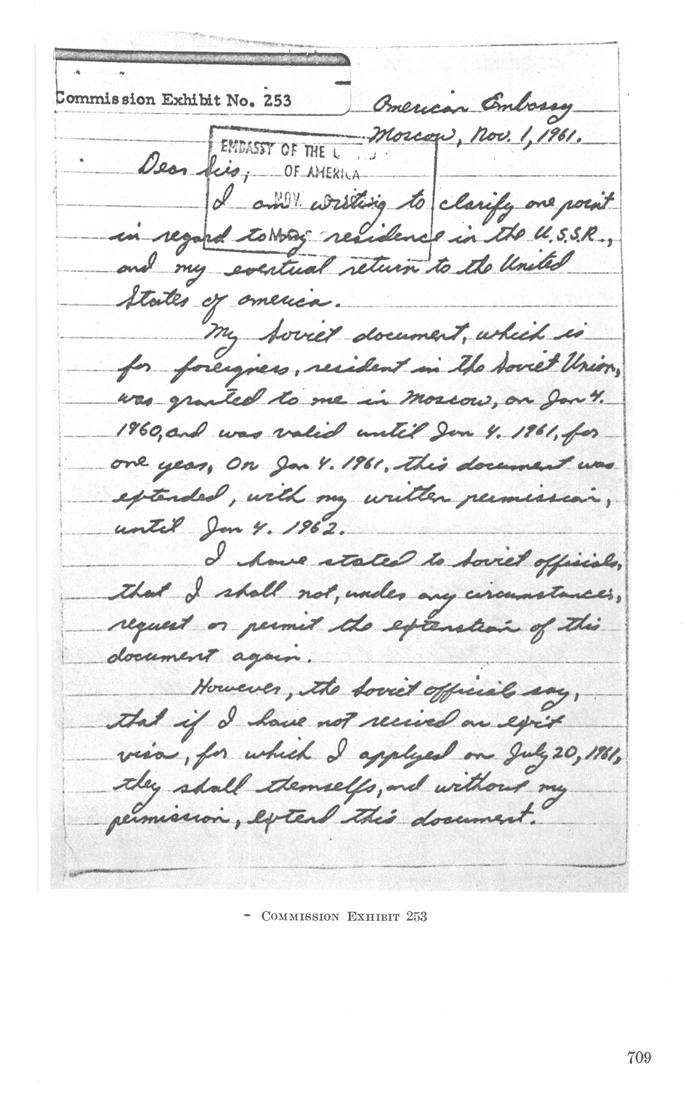 Commission Exhibit No. 253
American Embassy
Moscow, Nov. 1, 1961.
EMBASSY OF THE
OF AMERICA
NOV.
Dear Sirs;
I am writing to clarify one point
in regard to my residence in the U.S.S.R.,
and my eventual return to the United
States of america.
My Soviet document, which is
for foreigners, resident in the Soviet Union,
was granted to me in Moscow, on Jan 4.
1960, and was valid until Jan 4. 1961, for
one year, On Jan 4. 1961, this document was
extended, with my written permission,
until Jan 4. 1962.
I have stated to Soviet officials,
that I shall not, under any circumstances,
request or permit the extenstion of this
document again.
However, the Soviet officials say,
that if I have not recived an exit
visa, for which I applyed on July 20, 1961,
they shall themselfs, and without my
permission, extend this document.
- COMMISSION EXHIBIT 253
709